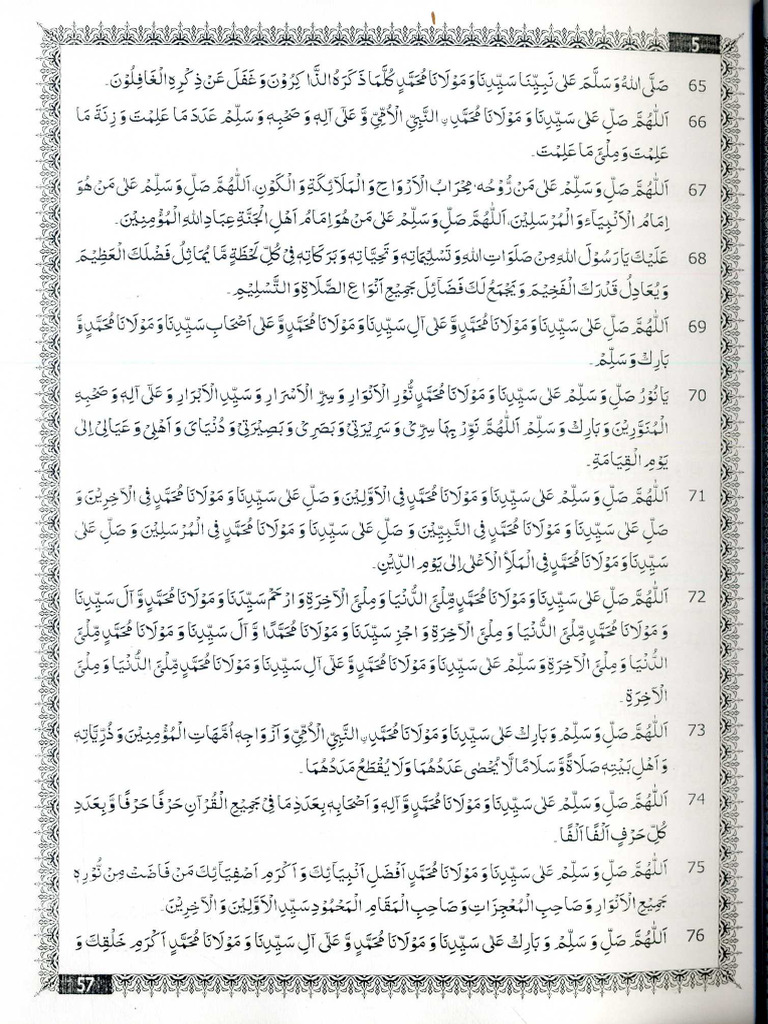 5
65 صَلَّی اللہُ وَسَلَّمَ عَلٰی نَبِیِّنَا سَیِّدِنَا وَ مَوْلَانَا مُحَمَّدٍ کُلَّمَا ذَکَرَہُ الذَّاکِرُوْنَ وَ غَفَلَ عَنْ ذِکْرِہِ الْغَافِلُوْنَ۔
66 اَللّٰھُمَّ صَلِّ عَلٰی سَیِّدِنَا وَ مَوْلَانَا مُحَمَّدِ ۣالنَّبِیِّ الْاُمِّیِّ وَّ عَلٰٓی اٰلِہٖ وَ صَحْبِہٖ وَ سَلِّمْ عَدَدَ مَا عَلِمْتَ وَ زِنَۃَ مَا
عَلِمْتَ وَ مِلْئَ مَا عَلِمْتَ۔
67 اَللّٰھُمَّ صَلِّ وَ سَلِّمْ عَلٰی مَنْ رُّوْحُہٗ مِحْرَابُ الْاَرْوَاحِ وَ الْمَلَآئِکَۃِ وَ الْکَوْنِ، اَللّٰھُمَّ صَلِّ وَ سَلِّمْ عَلٰی مَنْ ھُوَ
اِمَامُ الْاَنْبِیَآءِ وَ الْمُرْسَلِیْنَ، اَللّٰھُمَّ صَلِّ وَ سَلِّمْ عَلٰی مَنْ ھُوَ اِمَامُ اَھْلِ الْجَنَّۃِ عِبَادِ اللہِ الْمُؤْمِنِیْنَ۔
68 عَلَیْکَ یَا رَسُوْلَ اللہِ مِنْ صَلَوَاتِ اللہِ وَ تَسْلِیْمَاتِہٖ وَ تَحِیَّاتِہٖ وَ بَرَکَاتِہٖ فِیْ کُلِّ لَحْظَۃٍ مَّا یُمَاثِلُ فَضْلَکَ الْعَظِیْمَ
وَ یُعَادِلُ قَدْرَکَ الْفَخِیْمَ وَ یَجْمَعُ لَکَ فَضَآئِلَ جَمِیْعِ اَنْوَاعِ الصَّلَاۃِ وَ التَّسْلِیْمِ۔
69 اَللّٰھُمَّ صَلِّ عَلٰی سَیِّدِنَا وَ مَوْلَانَا مُحَمَّدٍ وَّ عَلٰٓی اٰلِ سَیِّدِنَا وَ مَوْلَانَا مُحَمَّدٍ وَّ عَلٰٓی اَصْحَابِ سَیِّدِنَا وَ مَوْلَانَا مُحَمَّدٍ وَّ
بَارِکْ وَ سَلِّمْ۔
70 یَا نُوْرُ صَلِّ وَ سَلِّمْ عَلٰی سَیِّدِنَا وَ مَوْلَانَا مُحَمَّدٍ نُّوْرِ الْاَنْوَارِ وَ سِرِّ الْاَسْرَارِ وَ سَیِّدِ الْاَبْرَارِ وَ عَلٰٓی اٰلِہٖ وَ صَحْبِہِ
الْمُنَوَّرِیْنَ وَ بَارِکْ وَ سَلِّمْ اَللّٰھُمَّ نَوِّرْ بِہَا سِرِّیْ وَ سَرِیْرَتِیْ وَ بَصَرِیْ وَ بَصِیْرَتِیْ وَ دُنْیَایَ وَ اَھْلِیْ وَ عَیَالِیْ اِلٰی
یَوْمِ الْقِیَامَۃِ۔
71 اَللّٰھُمَّ صَلِّ وَ سَلِّمْ عَلٰی سَیِّدِنَا وَ مَوْلَانَا مُحَمَّدٍ فِی الْاَوَّلِیْنَ وَ صَلِّ عَلٰی سَیِّدِنَا وَ مَوْلَانَا مُحَمَّدٍ فِی الْاٰخِرِیْنَ وَ
صَلِّ عَلٰی سَیِّدِنَا وَ مَوْلَانَا مُحَمَّدٍ فِی النَّبِیِّیْنَ وَ صَلِّ عَلٰی سَیِّدِنَا وَ مَوْلَانَا مُحَمَّدٍ فِی الْمُرْسَلِیْنَ وَ صَلِّ عَلٰی
سَیِّدِنَا وَ مَوْلَانَا مُحَمَّدٍ فِی الْمَلَأِ الْاَعْلٰی اِلٰی یَوْمِ الدِّیْنِ۔
72 اَللّٰھُمَّ صَلِّ عَلٰی سَیِّدِنَا وَ مَوْلَانَا مُحَمَّدٍ مِّلْئَ الدُّنْیَا وَ مِلْئَ الْاٰخِرَۃِ وَ ارْحَمْ سَیِّدَنَا وَ مَوْلَانَا مُحَمَّدٍ وَّ اٰلَ سَیِّدِنَا
وَ مَوْلَانَا مُحَمَّدٍ مِّلْئَ الدُّنْیَا وَ مِلْئَ الْاٰخِرَۃِ وَ اجْزِ سَیِّدَنَا وَ مَوْلَانَا مُحَمَّدًا وَّ اٰلَ سَیِّدِنَا وَ مَوْلَانَا مُحَمَّدٍ مِّلْئَ
الدُّنْیَا وَ مِلْئَ الْاٰخِرَۃِ وَ سَلِّمْ عَلٰی سَیِّدِنَا وَ مَوْلَانَا مُحَمَّدٍ وَّ عَلٰٓی اٰلِ سَیِّدِنَا وَ مَوْلَانَا مُحَمَّدٍ مِّلْئَ الدُّنْیَا وَ مِلْئَ
الْاٰخِرَۃِ۔
73 اَللّٰھُمَّ صَلِّ وَ سَلِّمْ وَ بَارِکْ عَلٰی سَیِّدِنَا وَ مَوْلَانَا مُحَمَّدِ ۣالنَّبِیِّ الْاُمِّیِّ وَ اَزْوَاجِہٖ اُمَّھَاتِ الْمُؤْمِنِیْنَ وَ ذُرِّیَّاتِہٖ
وَ اَھْلِ بَیْتِہٖ صَلَاۃً وَّ سَلَامًا لَّا یُحْصٰی عَدَدُھُمَا وَ لَا یُقْطَعُ مَدَدُھُمَا۔
74 اَللّٰھُمَّ صَلِّ وَ سَلِّمْ عَلٰی سَیِّدِنَا وَ مَوْلَانَا مُحَمَّدٍ وَّ اٰلِہٖ وَ اَصْحَابِہٖ بِعَدَدِ مَا فِیْ جَمِیْعِ الْقُرْاٰنِ حَرْفًا حَرْفًا وَّ بِعَدَدِ
کُلِّ حَرْفٍ اَلْفًا اَلْفًا۔
75 اَللّٰھُمَّ صَلِّ وَ سَلِّمْ عَلٰی سَیِّدِنَا وَ مَوْلَانَا مُحَمَّدٍ اَفْضَلِ اَنْبِیَآئِکَ وَ اَکْرَمِ اَصْفِیَآئِکَ مَنْ فَاضَتْ مِنْ نُّوْرِہٖ
جَمِیْعُ الْاَنْوَارِ وَ صَاحِبِ الْمُعْجِزَاتِ وَ صَاحِبِ الْمَقَامِ الْمَحْمُوْدِ سَیِّدِ الْاَوَّلِیْنَ وَ الْاٰخِرِیْنَ۔
76 اَللّٰھُمَّ صَلِّ وَ سَلِّمْ وَ بَارِکْ عَلٰی سَیِّدِنَا وَ مَوْلَانَا مُحَمَّدٍ وَّ عَلٰٓی اٰلِ سَیِّدِنَا وَ مَوْلَانَا مُحَمَّدٍ اَکْرَمِ خَلْقِکَ وَ
57